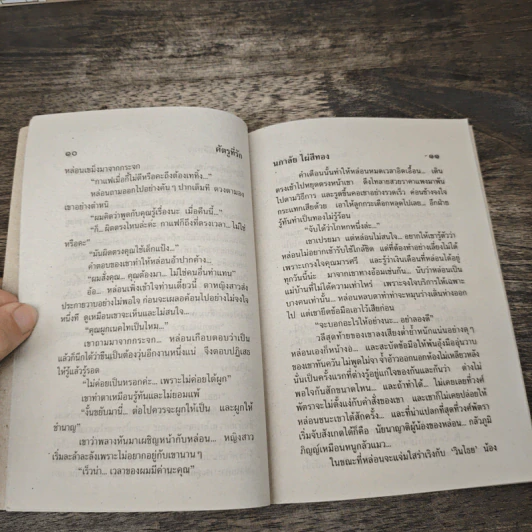 ๑๐ ศัตรูที่รัก
หล่อนเขม้งมาจากกระจก
“กาแฟเมื่อกี้ไม่ดีหรือคะถึงต้องเททิ้ง...”
หล่อนถามออกไปอย่างค้น ๆ ปากเต็มที ดวงตามอง
เขาอย่างตำหนิ
“ผมคิดว่าพูดกับคุณรู้เรื่องนะ เมื่อคืนนี้...”
“ก็... ผิดตรงไหนล่ะคะ กาแฟก็ถึงตรงเวลา... ไม่ใช่
หรือคะ”
“มันผิดตรงคุณใช้เด็กแป้ง...”
คำตอบของเขาทำให้หล่อนอ้าปากค้าง
“ผมสั่งคุณ... คุณต้องมา... ไม่ใช่คนอื่นทำแทน”
อ้อ... หล่อนเพิ่งเข้าใจท่านเดี๋ยวนี้ ตาหญิงสาวส่ง
ประกายวาบอย่างไม่พอใจ ก่อนจะเผลอค้อนไปอย่างไม่จงใจ
หนึ่งที ดูเหมือนเขาจะเห็นและไม่สนใจ...
“คุณผูกเนคไทเป็นไหม...”
เขาถามมาจากกระจก... หล่อนเกือบตอบว่าเป็น
แล้วก็นึกได้ว่าขืนเป็นต้องวุ่นอีกงานหนึ่งแน่ จึงตอบปฏิเสธ
ให้รู้แล้วรู้รอด
“ไม่ค่อยเป็นหรอกค่ะ... เพราะไม่ค่อยได้ผูก”
เขาทำตาเหมือนรู้ทันและไม่ยอมแพ้
“งั้นขยับมานี่... ต่อไปควรจะผูกให้เป็น และผูกให้
ชำนาญ”
เขาว่าพลางหันมาเผชิญหน้ากับหล่อน... หญิงสาว
เริ่มละล้าละลังเพราะไม่อยากอยู่กับเขานาน ๆ
“เร็วน่า... เวลาของผมมีค่านะคุณ”
นภาลัย ไผ่สีทอง ๑๑
คำเตือนนั้นทำให้หล่อนหมดเวลาอิดเอื้อน... เดิน
ตรงเข้าไปหยุดตรงหน้าเขา ดึงไทลายสวยราคาแพงมาพัน
ไปตามวิธีการ และรูดขึ้นคออย่างรวดเร็ว ค่อนข้างจงใจ
กระแทกเสียด้วย เอาให้ลูกกระเดือกหลุดไปเลย... อีกฝ่าย
รู้ทันทำเป็นทองไม่รู้ร้อน
“จับได้ว่าโกหกหนึ่งล่ะ...”
เขาเปรยมา แต่หล่อนไม่สนใจ... อยากให้เขารู้ตัวว่า
หล่อนไม่อยากเข้ารับใช้ใกล้ชิด แต่ที่ต้องทำอย่างเลี่ยงไม่ได้
เพราะเกรงใจคุณมารศรี และรู้ว่าเงินเดือนที่หล่อนได้อยู่
ทุกวันนี้น่ะ มาจากเขาทางอ้อมเช่นกัน... นับว่าหล่อนเป็น
แม่บ้านที่ไม่ได้ความเท่าไหร่ เพราะจงใจบริการให้เฉพาะ
บางคนเท่านั้น... หล่อนหลบตาทำท่าจะหมุนร่างเดินห่างออก
ไป แต่เขายึดข้อมือเอาไว้เสียก่อน
“จะบอกอะไรให้อย่างนะ... อย่าลองดี”
วลีสุดท้ายของเขาลงเสียงต่ำย้ำหนักแน่นอย่างดุ ๆ
หล่อนเองก็หน้างอ... และสะบัดข้อมือให้พ้นอุ้งมืออุ่นวาบ
ของเขาทันควัน ไม่พูดไม่จา จ้ำอ้าวออกนอกห้องไม่เหลียวหลัง
นั่นเป็นครั้งแรกที่ต่างรู้อยู่แก่ใจของกันและกันว่า ต่างไม่
พอใจกันสักขนาดไหน... และถ้าทำได้... ไม่เคยเลยที่วงศ์
พัตราจะไม่ตั้งแง่กับคำสั่งของเขา และเขาก็ไม่เคยปล่อยให้
หล่อนชนะเขาได้สักครั้ง... และที่น่าแปลกที่สุดที่วงศ์พัตรา
เริ่มจับสังเกตได้ก็คือ นัยนาญาติผู้น้องของหล่อน... กลัวภูมิ
ภิญญ์เหมือนหนูกลัวแมว...
ในขณะที่หล่อนจะแจ่มใสร่าเริงกับ ‘วินโยธ’ น้อง